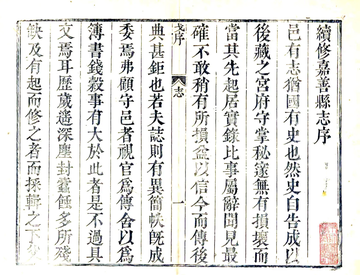 續修嘉善縣志序
邑有志猶國有史也然史自告成以
後藏之宮府守掌秘邃無有損壞而
當其先起居實錄比事屬辭聞見最
確不敢稍有所損益以信今而傳後
典甚鉅也若夫誌則有異簡帙既成
委焉弗顧守邑者視官爲傳舍以爲
簿書錢穀事有大於此者是不過具
文焉耳歷歲遙深塵封蠹蝕多所殘
缺及有起而修之者而採輯之下
序
志
一